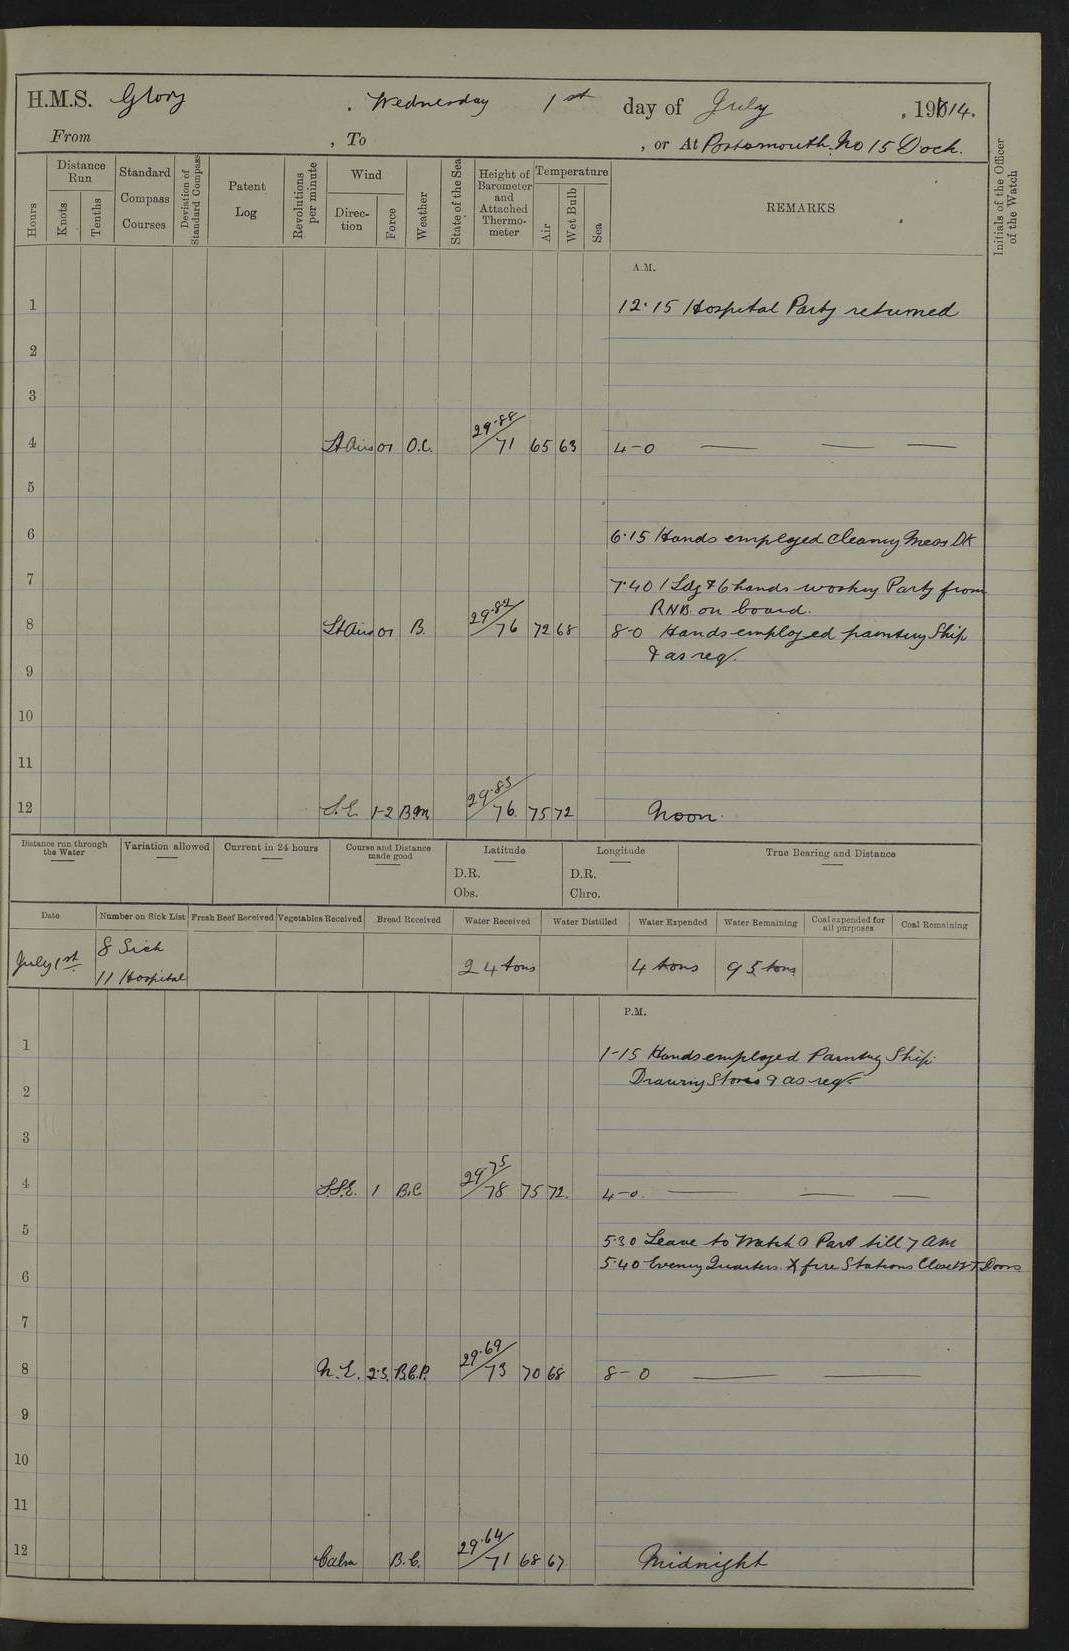 H.M.S. Glory , Wednesday 1st day of July , 1914.
From , To , or At Portsmouth. No 15 Dock.
Hours
Distance Run
Knots
Tenths
Standard Compass Courses
Deviation of Standard Compass
Patent Log
Revolutions per minute
Wind
Direction
Force
Weather
State of the Sea
Height of Barometer and Attached Thermometer
Temperature
Air
Wet Bulb
Sea
REMARKS
Initials of the Officer of the Watch
A.M.
1 12.15 Hospital Party returned
2
3
4 Lt Airs 01 O.C. 29.88/71 65 63 4-0 — — —
5
6 6.15 Hands employed cleaning Mess Dk
7 7.40 1 Ldg & 6 hands working Party from
RNB on board.
8 Lt Airs 01 B. 29.82/76 72 68 8-0 Hands employed painting Ship
& as req.
9
10
11
12 S.E. 1-2 B.M. 29.83/76 75 72 Noon
Distance run through the Water
Variation allowed
Current in 24 hours
Course and Distance made good
Latitude
D.R.
Obs.
Longitude
D.R.
Chro.
True Bearing and Distance
Date Number on Sick List Fresh Beef Received Vegetables Received Bread Received Water Received Water Distilled Water Expended Water Remaining Coal expended for all purposes Coal Remaining
July 1st 8 Sick 24 tons 4 tons 95 tons
11 Hospital
P.M.
1 1-15 Hands employed Painting Ship
Drawing Stores & as req.
2
3
4 S.S.E. 1 B.C 29 75/78 75 72. 4-0. — — —
5 5.30 Leave to Watch & Part till 7 AM
5.40 Evening Quarters. X fire Stations Closed W T Doors
6
7
8 N.E. 2.3. B.C.P. 29.69/73 70 68 8-0 — —
9
10
11
12 Calm B.C. 29.64/71 68 67 Midnight